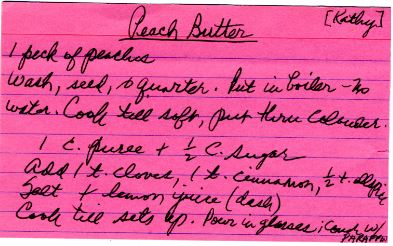 Peach Butter [Kathy]
1 peck of peaches
Wash, seed, & quarter. Put in boiler - no
water. Cook till soft, put thru colander.
1 c. puree + 1/2 C. sugar
Add 1 t. cloves, 1 t. cinnamon, 1/2 t. allspice
Salt + lemon juice (dash)
Cook till sets up. Pour in glasses; Cover w/
PARAFFIN